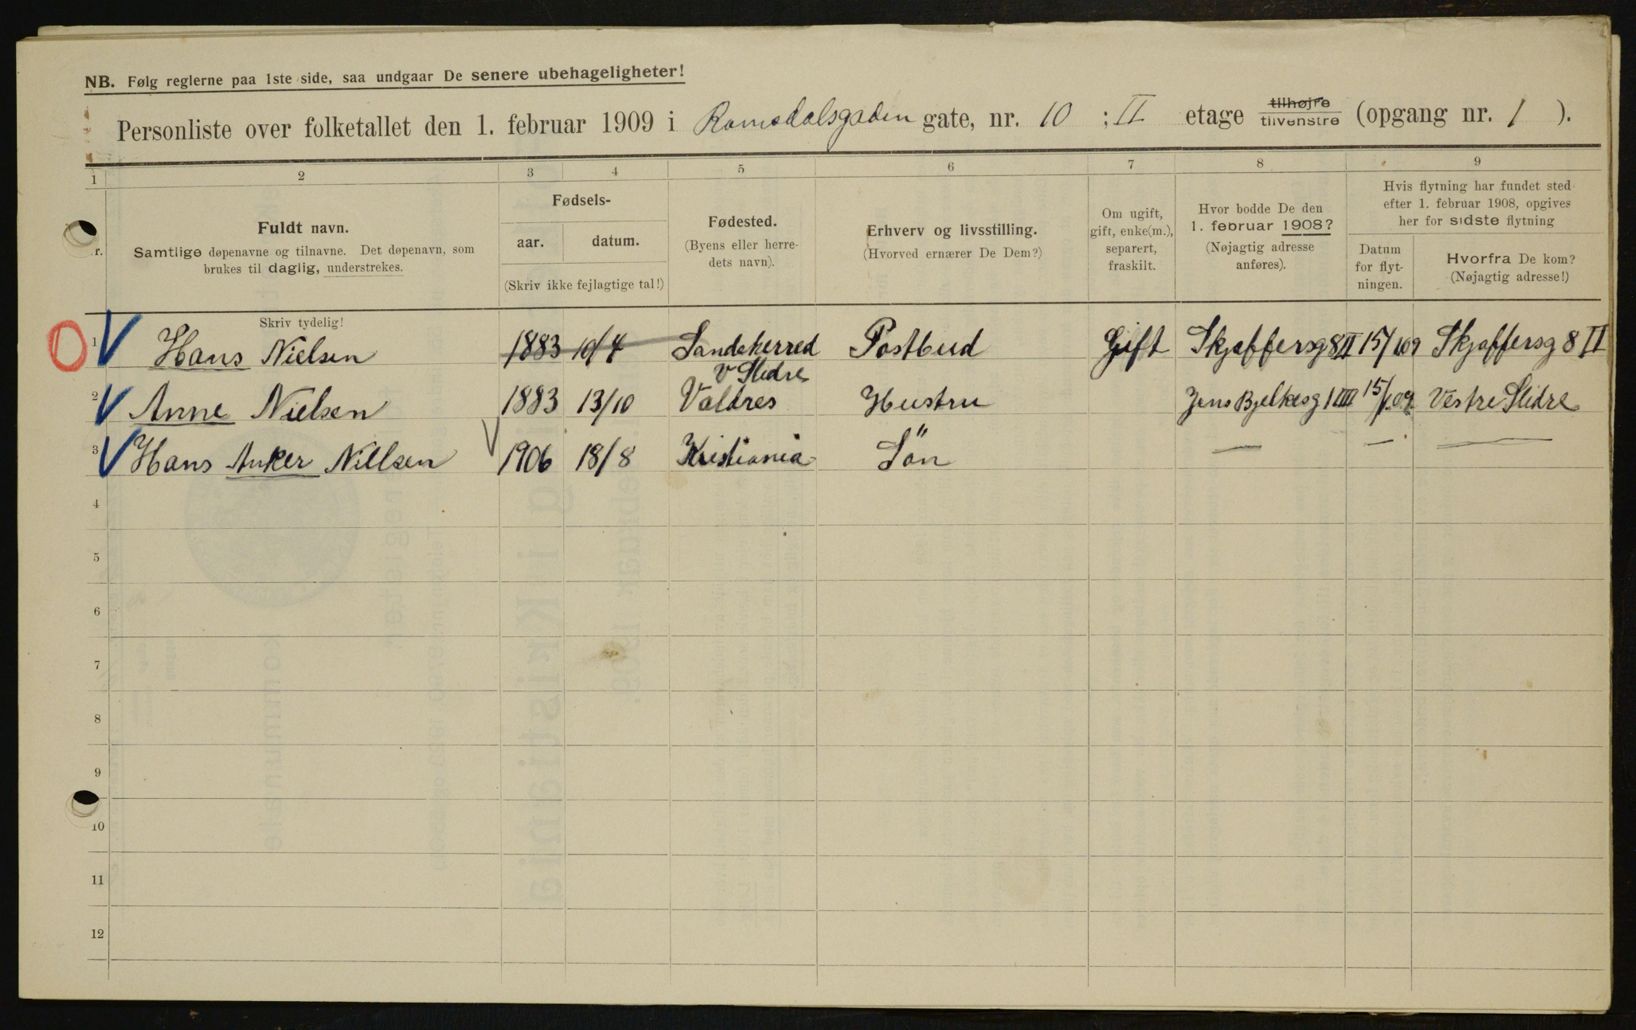 NB. Følg reglerne paa 1ste side, saa undgaar De senere ubehageligheter!
Personliste over folketallet den 1. februar 1909 i Romsdalsgaden gate, nr. 10 ; II etage tilhøjre tilvenstre (opgang nr. 1 ).
1 2 3 4 5 6 7 8 9
Fuldt navn.
Samtlige døpenavne og tilnavne. Det døpenavn, som
brukes til daglig, understrekes.
Fødsels-
aar. datum.
(Skriv ikke fejlagtige tal!)
Fødested.
(Byens eller herre-
dets navn).
Erhverv og livsstilling.
(Hvorved ernærer De Dem?)
Om ugift,
gift, enke(m.),
separert,
fraskilt.
Hvor bodde De den
1. februar 1908?
(Nøjagtig adresse
anføres).
Hvis flytning har fundet sted
efter 1. februar 1908, opgives
her for sidste flytning
Datum
for flyt-
ningen.
Hvorfra De kom?
(Nøjagtig adresse!)
Skriv tydelig!
1 Hans Nielsen 1883 10/4 Sandeherred Postbud Gift Skjaffersg 8 II 15/1 09 Skjaffersg 8 II
V Slidre
2 Anne Nielsen 1883 13/10 Valdres Hustru Jens Bjelkesg 1 IIII 15/1 09. Vestre Slidre
3 Hans Anker Nielsen 1906 18/8 Kristiania Sön — — —
4
5
6
7
8
9
10
11
12